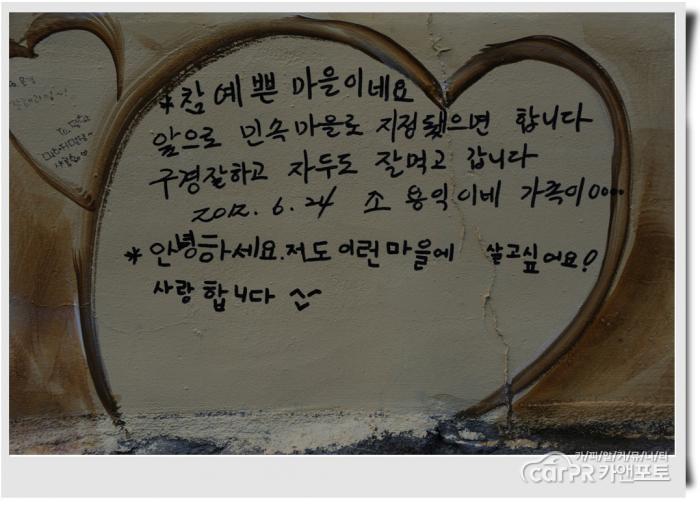 *참 예쁜 마을이네요
앞으로 민속마을로 지정됐으면 합니다
구경잘하고 자두도 잘먹고 갑니다
2012. 6. 24 조 용익이네 가족이○○...
*안녕하세요.저도 이런마을에 살고싶어요!
사랑합니다 ^~^
카/피/알/커/뮤/니/티
carPR 카앤포토